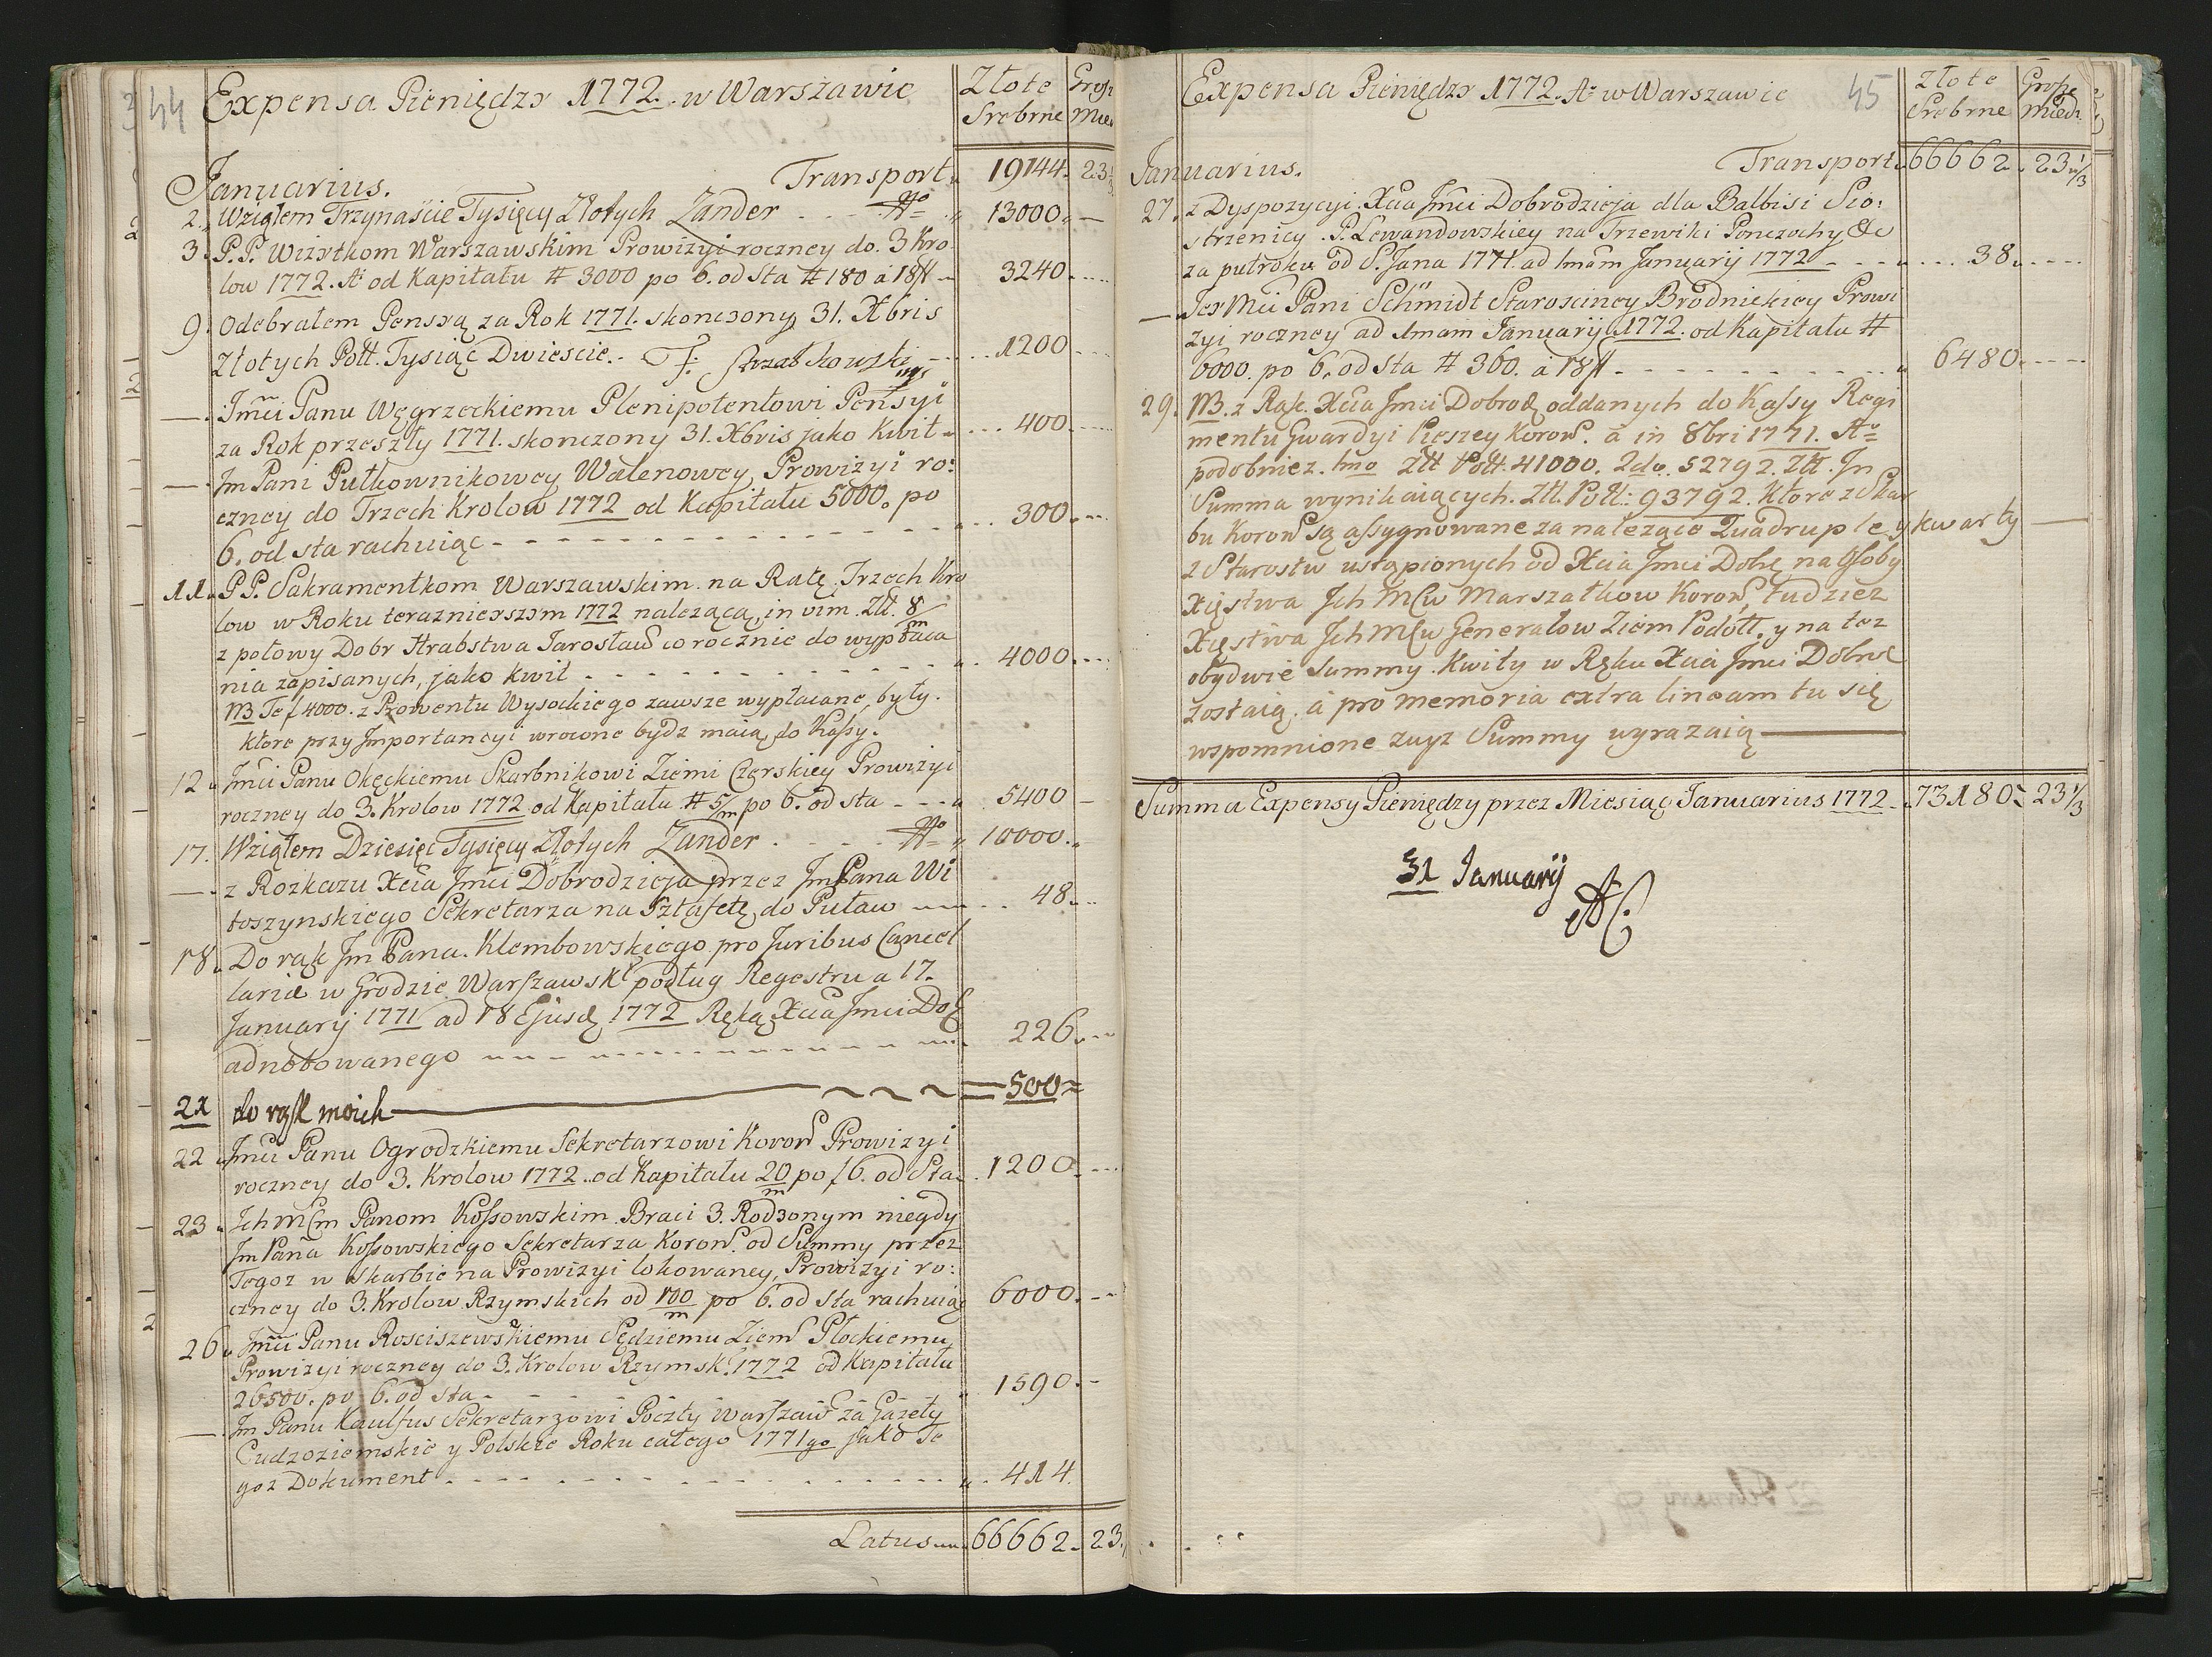 44 Expensa Pieniędzy 1772. w Warszawie
Złote Grosz
Srebrne Mie
Januarius. Transport 19144. 23
2. Wziąłem Trzynaście Tysięcy Złotych Zander 13000. —
3. P.P. Wizytkom Warszawskim Prowizyi roczney do. 3 Kro
low 1772. Aº od Kapitału # 3000 po 6. od Sta # 180 a 18 3240.
9. Odebrałem Pensyą za Rok 1771. skonczony 31. Xbris
Złotych Poll. Tysiąc Dwiescie. 1200
—. Jmći Panu Węgrzeckiemu Plenipotentowi Pensyi
za Rok przeszły 1771. skonczony 31. Xbris jako Kwit 400.
—. Jm Pani Pułkownikowey Walenowey Prowizyi ro:
czney do Trzech Krolow 1772 od Kapitału 5000. po
6. od sta rachuiąc 300.
11. P.P. Sakramentkom Warszawskim na Ratę Trzech Kro
low w Roku teraznieyszym 1772 nalezącą, in vim. Złł. 8/m
z połowy Dobr Hrabstwa Jarosław co rocznie do wypłaca
nia zapisanych, jako kwit 4000.
NB Te f 4000. z Prowentu Wysockiego zawsze wypłacane były.
ktore przy Importancyi wrocone bydz maią do Kassy.
12. Jmći Panu Okęckiemu Skarbnikowi Ziemi Czerskiey Prowizyi
roczney do 3. Krolow 1772 od Kapitału # 5/m po 6. od sta 5400 —
17. Wziąłem Dziesięć Tysięcy Złotych Zander 10000.
—. z Rozkazu Xcia Jmći Dobrodzieja przez Jm Pana Wi
toszynskiego Sekretarza na Sztafetę do Puław 48.
18. Do rąk Jm Pana. Klembowskiego pro Juribus Cancel
lariæ w Grodzie Warszawsk podług Regestru a 17.
January 1771 ad 18 Ejusd 1772 Ręką Xcia Jmci Dob
adnotowanego 226.
21 do rąk moich — = 500 =
22. Jmći Panu Ogrodzkiemu Sekretarzowi Koron Prowizyi
roczney do 3. Krolow 1772. od Kapitału 20/m po f 6. od Sta 1200.
23. Ich Mćm Panom Kossowskim Braci 3. Rodzonym niegdy
Jm Pana Kossowskiego Sekretarza Koron. od Summy przez
Tegoz w Skarbie na Prowizyi lokowaney, Prowizyi ro:
czney do 3. Krolow Rzymskich od 100/m po 6. od Sta rachuiąc 6000.
26. Jmći Panu Rosciszewskiemu Sędziemu Ziem Płockiemu
Prowizyi roczney do 3. Krolow Rzymsk. 1772 od Kapitału
26500. po 6. od sta 1590. -
—. Jm Panu Kaulfus Sekretarzowi Poczty Warszaw za Gazety
Cudzoziemskie y Polskie Roku całego 1771go jako Te
goz Dokument 414.
Latus 66662. 23.
Expensa Pieniędzy 1772. Aº w Warszawie 45
Złote Grosze
Srebrne Miedz.
Januarius. Transport. 66662. 23 1/3
27. z Dyspozycyi Xcia Jmći Dobrodzieja dla Balbisi Sio:
strzenicy P. Lewandowskiey na Trzewiki Ponczochy &c
za pułroku od S. Jana 1771. ad 1mam Januarij 1772 38.
— Jey Mći Pani Schmidt Starosciney Brodnickiey Prowi
zyi roczney ad 1mam Januarij 1772. od Kapitału #
6000. po 6. od Sta # 360. a 18 6480.
29. NB. z Rąk. Xcia Jmći Dobrod oddanych do Kassy Regi
mentu Gwardyi Pieszey Koron. a in 8bri 1771. Aº
podobniez. 1mo Złł Poll. 41000. 2do. 52792. Złł. In
Summa wynikaiących. Złł. Poll: 93792. Ktore z Skar
bu Koron są assygnowane za nalezące Quadrupley kwarty —
z Starostw ustąpionych od Xcia Jmći Dobr na Osoby
Xięstwa Ich Mćw Marszałkow Koron, tudziez
Xięstwa Ich Mćw Generałow Ziem Podoll. y na tez
obydwie Summy. Kwity w Ręku Xcia Jmći Dobrd
zostaią. a pro memoria extra lineam tu się
wspomnione zwyz Summy wyrazaią —
Summa Expensy Pieniędzy przez Miesiąc Januarius 1772. 73180. 23 1/3
31 Januarij
AC